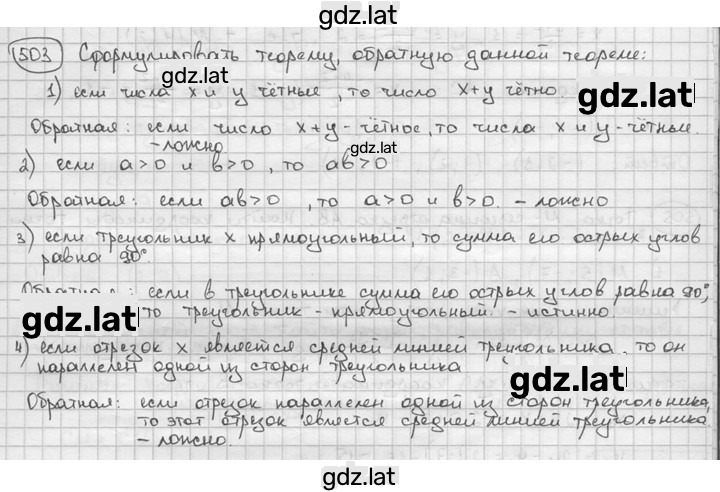 gdz.lat
1503 Сформулировать теорему, обратную данной теореме:
gdz.lat
1) если числа x и y чётные, то число x+y чётно.
gdz.lat
Обратная: если число x+y - чётное, то числа x и y - чётные.
- ложно
gdz.lat
2) если a>0 и b>0, то ab>0
Обратная: если ab>0, то a>0 и b>0. - ложно
3) если треугольник x прямоугольный, то сумма его острых углов
равна 90°
если в треугольнике сумма его острых углов равна 90°,
gdz.lat
то треугольник - прямоугольный. - истинно.
4) если отрезок x является средней линией треугольника, то он
параллелен одной из сторон треугольника
gdz.lat
Обратная: если отрезок параллелен одной из сторон треугольника,
то этот отрезок является средней линией треугольника
- ложно.
gdz.lat